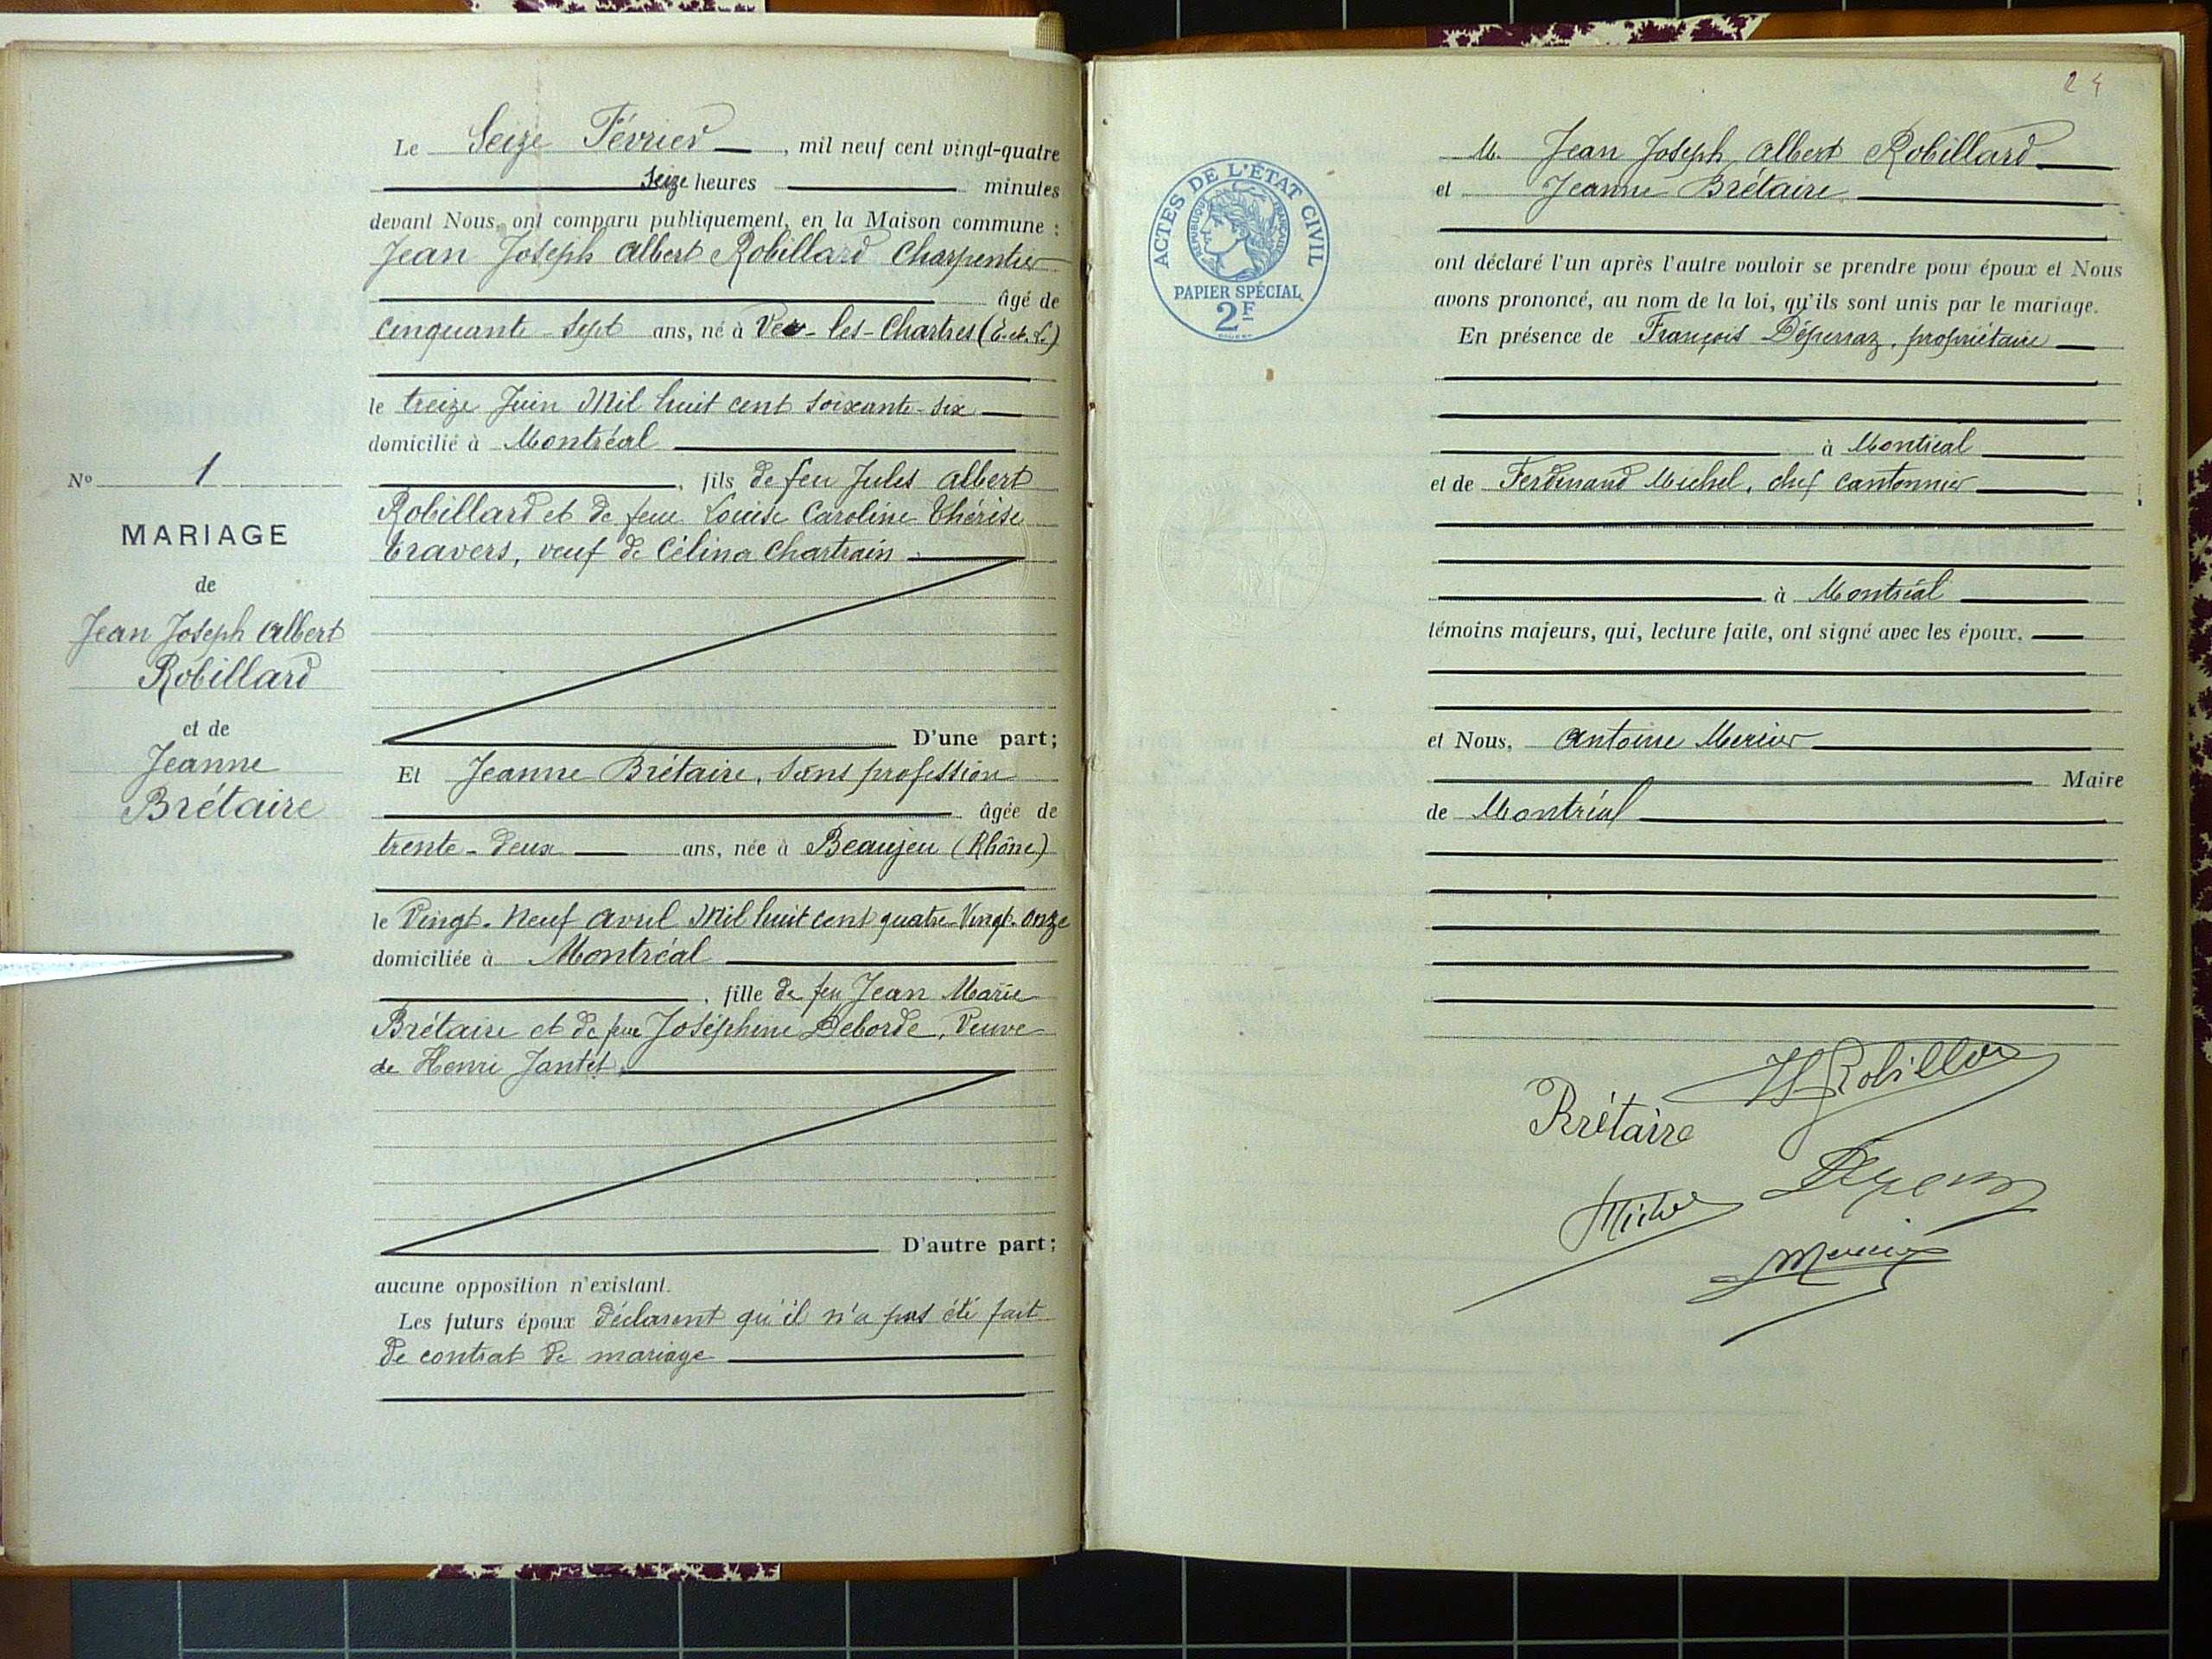 Le Seize Février, mil neuf cent vingt-quatre
Seize heures minutes
devant Nous, ont comparu publiquement, en la Maison commune :
Jean Joseph Albert Robillard Charpentier
âgé de
Cinquante-Sept ans, né à Ver-les-Chartres (E.et.L.)
le treize Juin Mil huit cent soixante-six
domicilié à Montréal
, fils de feu Jules Albert
Robillard et de feue Louise Caroline Thérèse
Travers, veuf de Célina Chartrain
D'une part;
Et Jeanne Brétaire, sans profession
âgée de
trente-deux ans, née à Beaujeu (Rhône)
le Vingt-Neuf avril Mil huit cent quatre-Vingt-onze
domiciliée à Montréal
, fille de feu Jean Marie
Brétaire et de feue Joséphine Deborde, Veuve
de Henri Jantet
D'autre part;
aucune opposition n'existant.
Les futurs époux déclarent qu'il n'a pas été fait
de contrat de mariage
No 1
MARIAGE
de
Jean Joseph Albert
Robillard
et de
Jeanne
Brétaire
24
ACTES DE L'ÉTAT CIVIL
RÉPUBLIQUE FRANÇAISE
PAPIER SPÉCIAL
2F
M. Jean Joseph Albert Robillard
et Jeanne Brétaire
ont déclaré l'un après l'autre vouloir se prendre pour époux et Nous
avons prononcé, au nom de la loi, qu'ils sont unis par le mariage.
En présence de François Déperraz, propriétaire
à Montréal
et de Ferdinand Michel, chef cantonnier
à Montréal
témoins majeurs, qui, lecture faite, ont signé avec les époux.
et Nous, Antoine Mercier
Maire
de Montréal
Robillard
Brétaire
Michel
Mercier